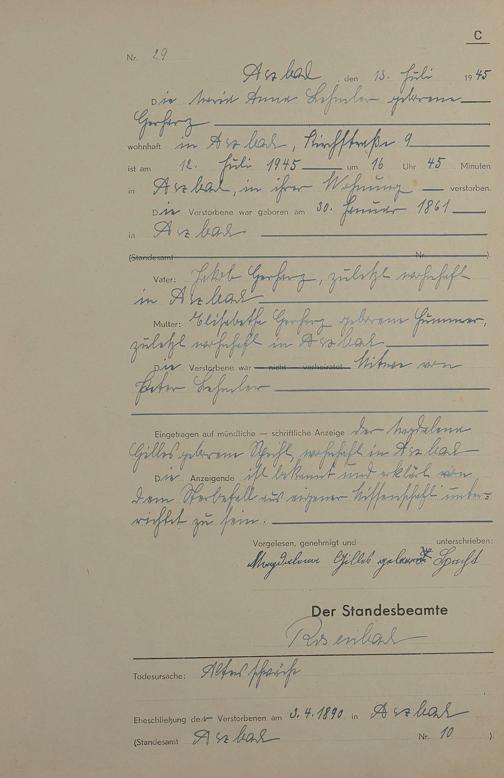 C
Nr. 29
Arzbach, den 13. Juli 1945
Die Maria Anna Lehmler geborene
Gerharz
wohnhaft in Arzbach, Kirchstraße 9
ist am 12. Juli 1945 um 16 Uhr 45 Minuten
in Arzbach, in ihrer Wohnung verstorben.
Die Verstorbene war geboren am 30. Januar 1861
in Arzbach
(Standesamt Nr. )
Vater: Jakob Gerharz, zuletzt wohnhaft
in Arzbach
Mutter: Elisabetha Gerharz geborene Hummer,
zuletzt wohnhaft in Arzbach
Die Verstorbene war nicht verheiratet Witwe von
Peter Lehmler
Eingetragen auf mündliche — schriftliche Anzeige der Magdalena
Gilles geborene Specht, wohnhaft in Arzbach
Die Anzeigende ist bekannt und erklärt von
dem Sterbefall aus eigener Wissenschaft unter=
richtet zu sein.
Vorgelesen, genehmigt und unterschrieben:
Magdalena Gilles Specht
Der Standesbeamte
Todesursache: Altersschwäche
Eheschließung der Verstorbenen am 3.4.1890 in Arzbach
(Standesamt Arzbach Nr. 10 ).